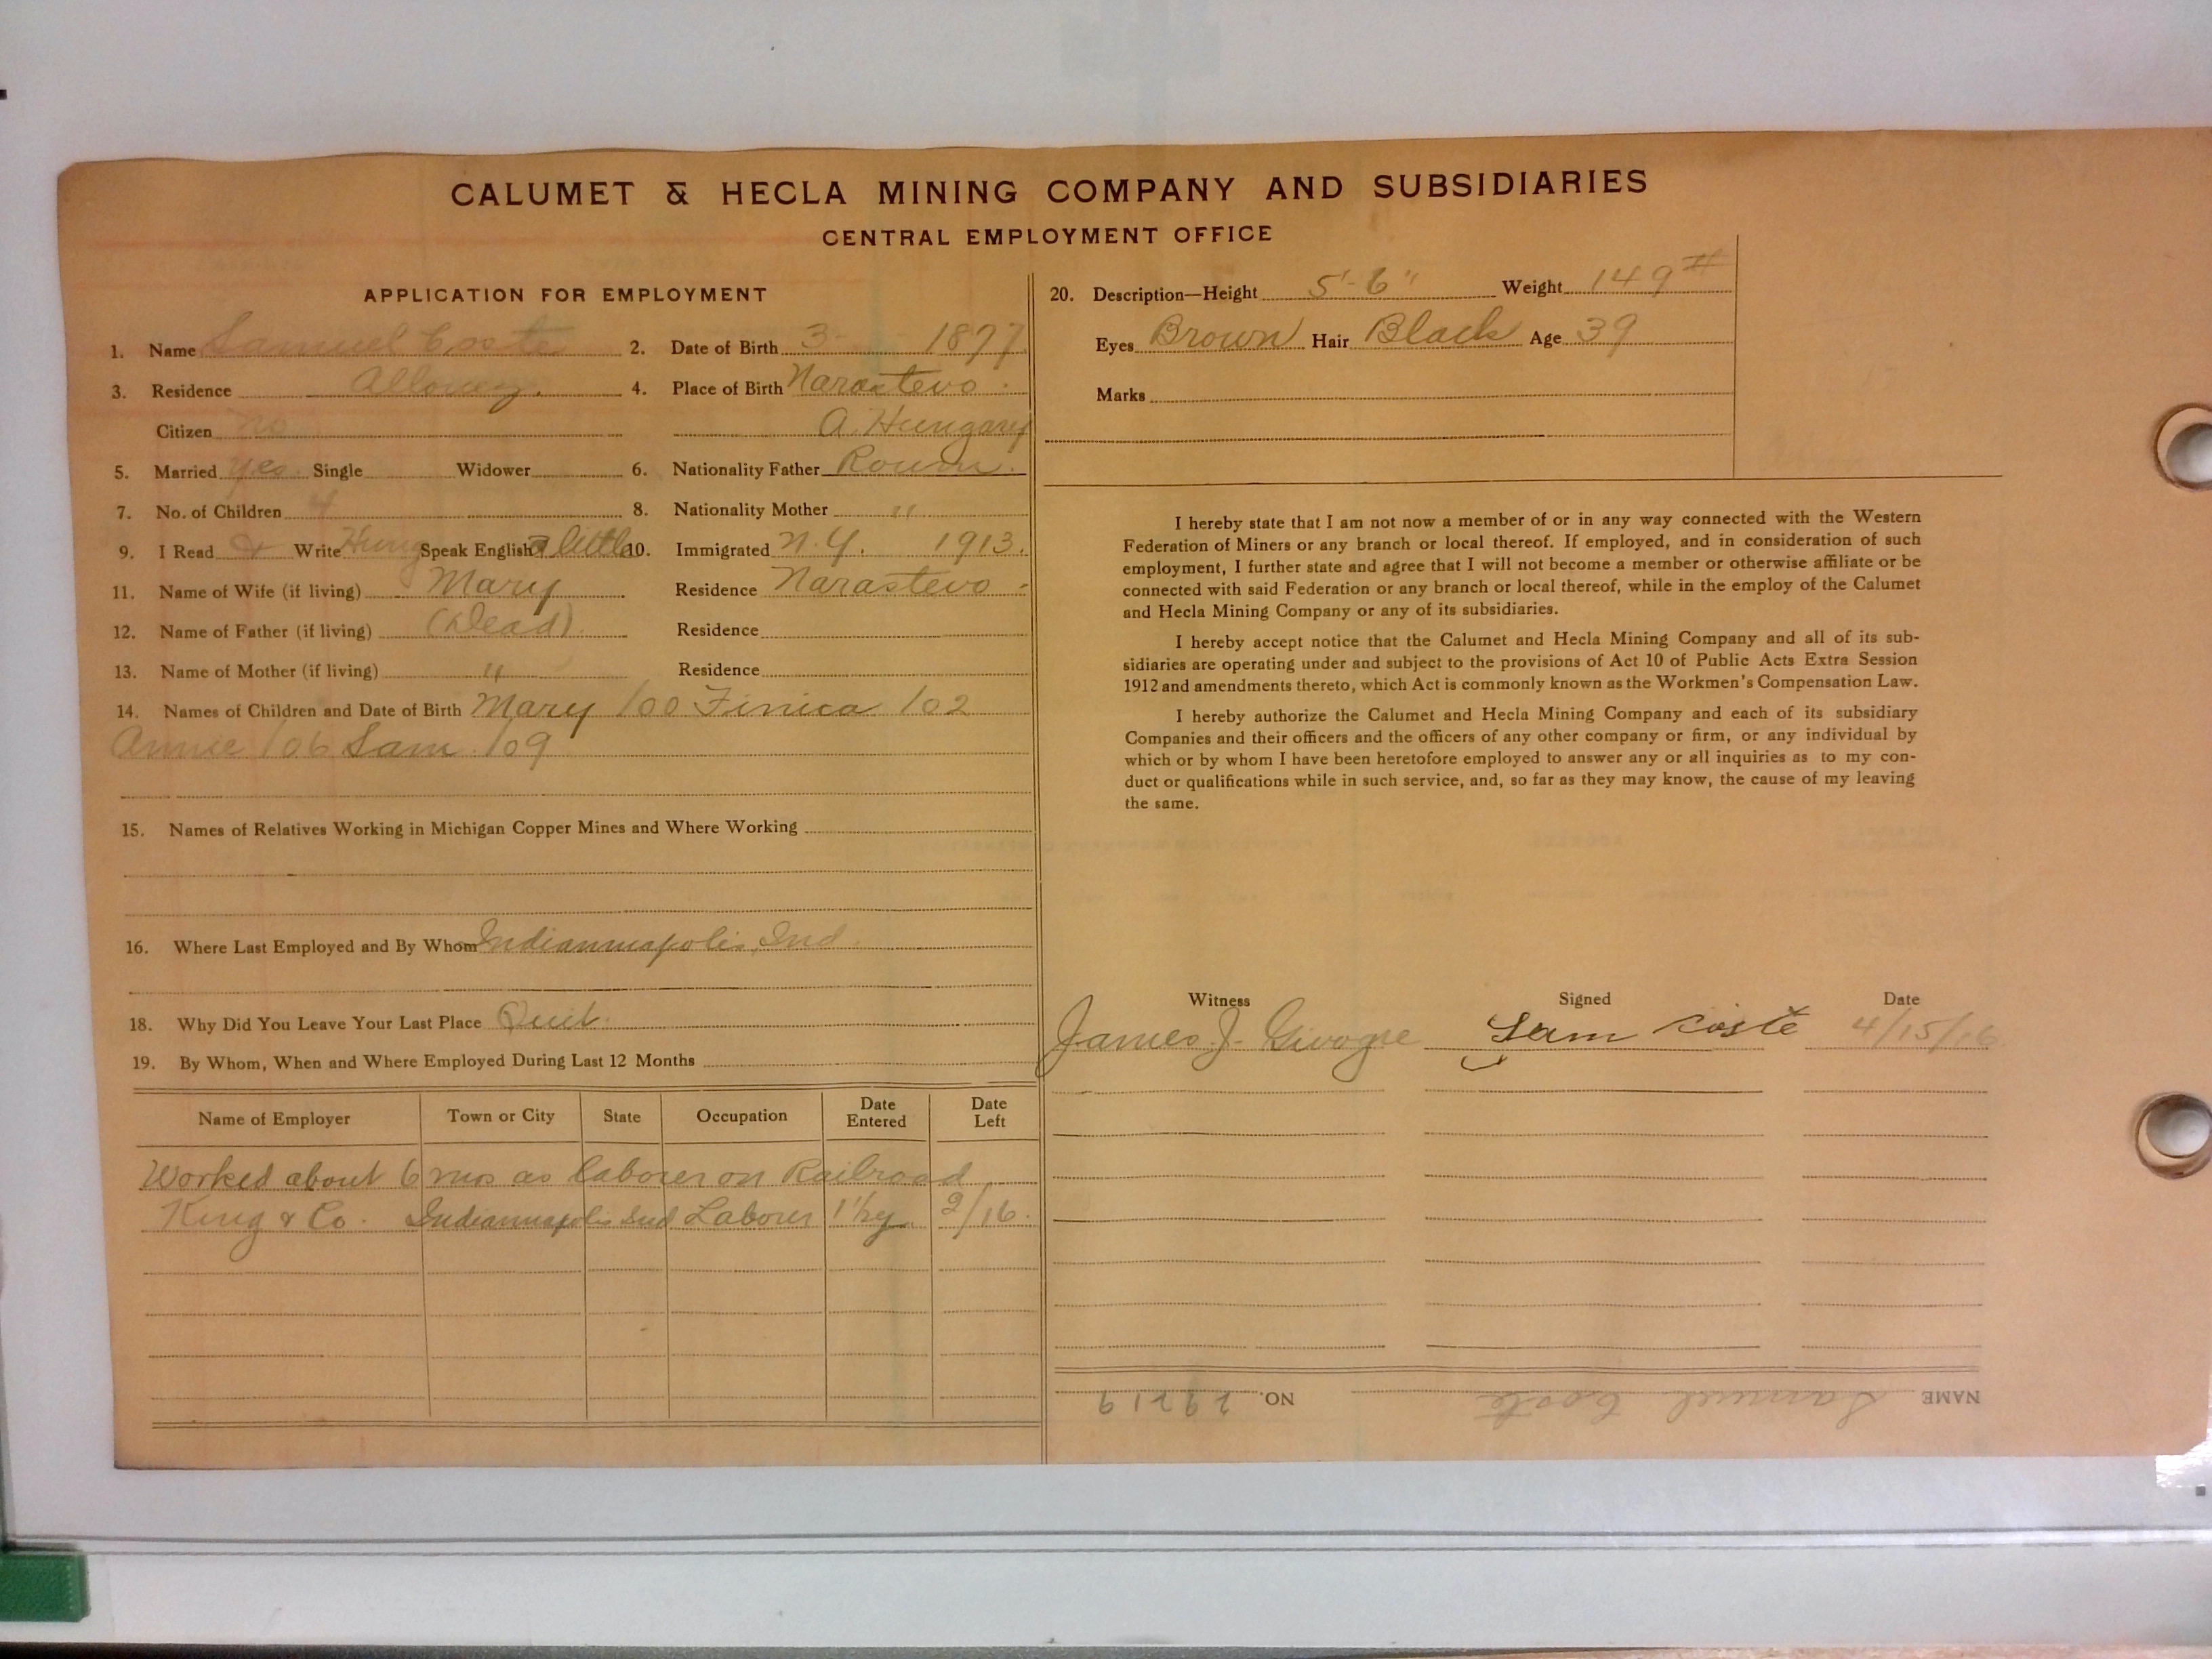 CALUMET & HECLA MINING COMPANY AND SUBSIDIARIES
CENTRAL EMPLOYMENT OFFICE
APPLICATION FOR EMPLOYMENT
1. Name Samuel Coste 2. Date of Birth 3- 1877
3. Residence Allouez. 4. Place of Birth Narastevo
Citizen no A. Hungary
5. Married yes Single Widower 6. Nationality Father Roum.
7. No. of Children 4 8. Nationality Mother "
9. I Read & Write Hung Speak English a little 10. Immigrated N.Y. 1913.
11. Name of Wife (if living) Mary Residence Narastevo
12. Name of Father (if living) (Dead) Residence
13. Name of Mother (if living) " Residence
14. Names of Children and Date of Birth Mary /00 Finica /02
Annie /06 Sam /09
15. Names of Relatives Working in Michigan Copper Mines and Where Working
16. Where Last Employed and By Whom Indiannapolis, Ind.
18. Why Did You Leave Your Last Place Quit.
19. By Whom, When and Where Employed During Last 12 Months
Name of Employer Town or City State Occupation Date Entered Date Left
Worked about 6 mos as laborer on Railroad
King & Co. Indiannapolis Ind Laborer 1 1/2 y 2/16.
20. Description—Height 5'-6" Weight 149#
Eyes Brown Hair Black Age 39
Marks
I hereby state that I am not now a member of or in any way connected with the Western
Federation of Miners or any branch or local thereof. If employed, and in consideration of such
employment, I further state and agree that I will not become a member or otherwise affiliate or be
connected with said Federation or any branch or local thereof, while in the employ of the Calumet
and Hecla Mining Company or any of its subsidiaries.
I hereby accept notice that the Calumet and Hecla Mining Company and all of its sub-
sidiaries are operating under and subject to the provisions of Act 10 of Public Acts Extra Session
1912 and amendments thereto, which Act is commonly known as the Workmen's Compensation Law.
I hereby authorize the Calumet and Hecla Mining Company and each of its subsidiary
Companies and their officers and the officers of any other company or firm, or any individual by
which or by whom I have been heretofore employed to answer any or all inquiries as to my con-
duct or qualifications while in such service, and, so far as they may know, the cause of my leaving
the same.
Witness Signed Date
James J. Sam Coste 4/15/16
NAME Samuel Coste NO. 29219